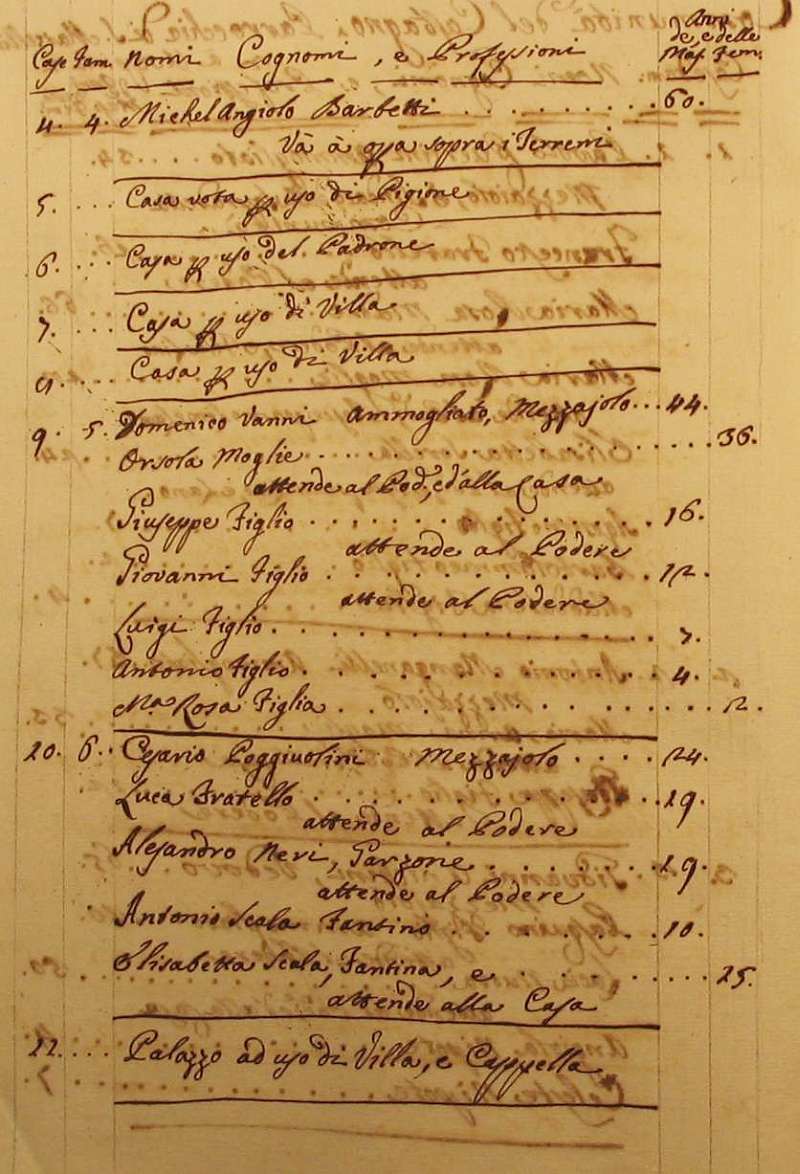 Case Fam. Nomi Cognomi, e Professioni Anni de, e delle Mas. Fem.
4. 4. Michel Angiolo Barbetti 60.
Và à opra sopra i Terreni
5. Casa vota per uso di Pigione
6. Casa per uso del Padrone
7. Casa per uso di Villa
Casa per uso di Villa
9. 5. Domenico Vanni Ammogliato, Mezzajolo 44.
Orsola Moglie 36.
attende al Pod.e, ed alla Casa
Giuseppe Figlio 16.
attende al Podere
Giovanni Figlio 12.
attende al Podere
Luigi Figlio 7.
Antonio Figlio 4.
Ma. Rosa Figlia 12.
10. 6. Cesario Poggivolini Mezzajolo 24.
Luca Fratello 19.
attende al Podere
Alesandro Neri, Garzone 19.
attende al Podere
Antonio Scala Fantino 10.
Elisabetta Scala, Fantina, e 25.
attende alla Casa
11. Palazzo ad uso di Villa, e Cappella